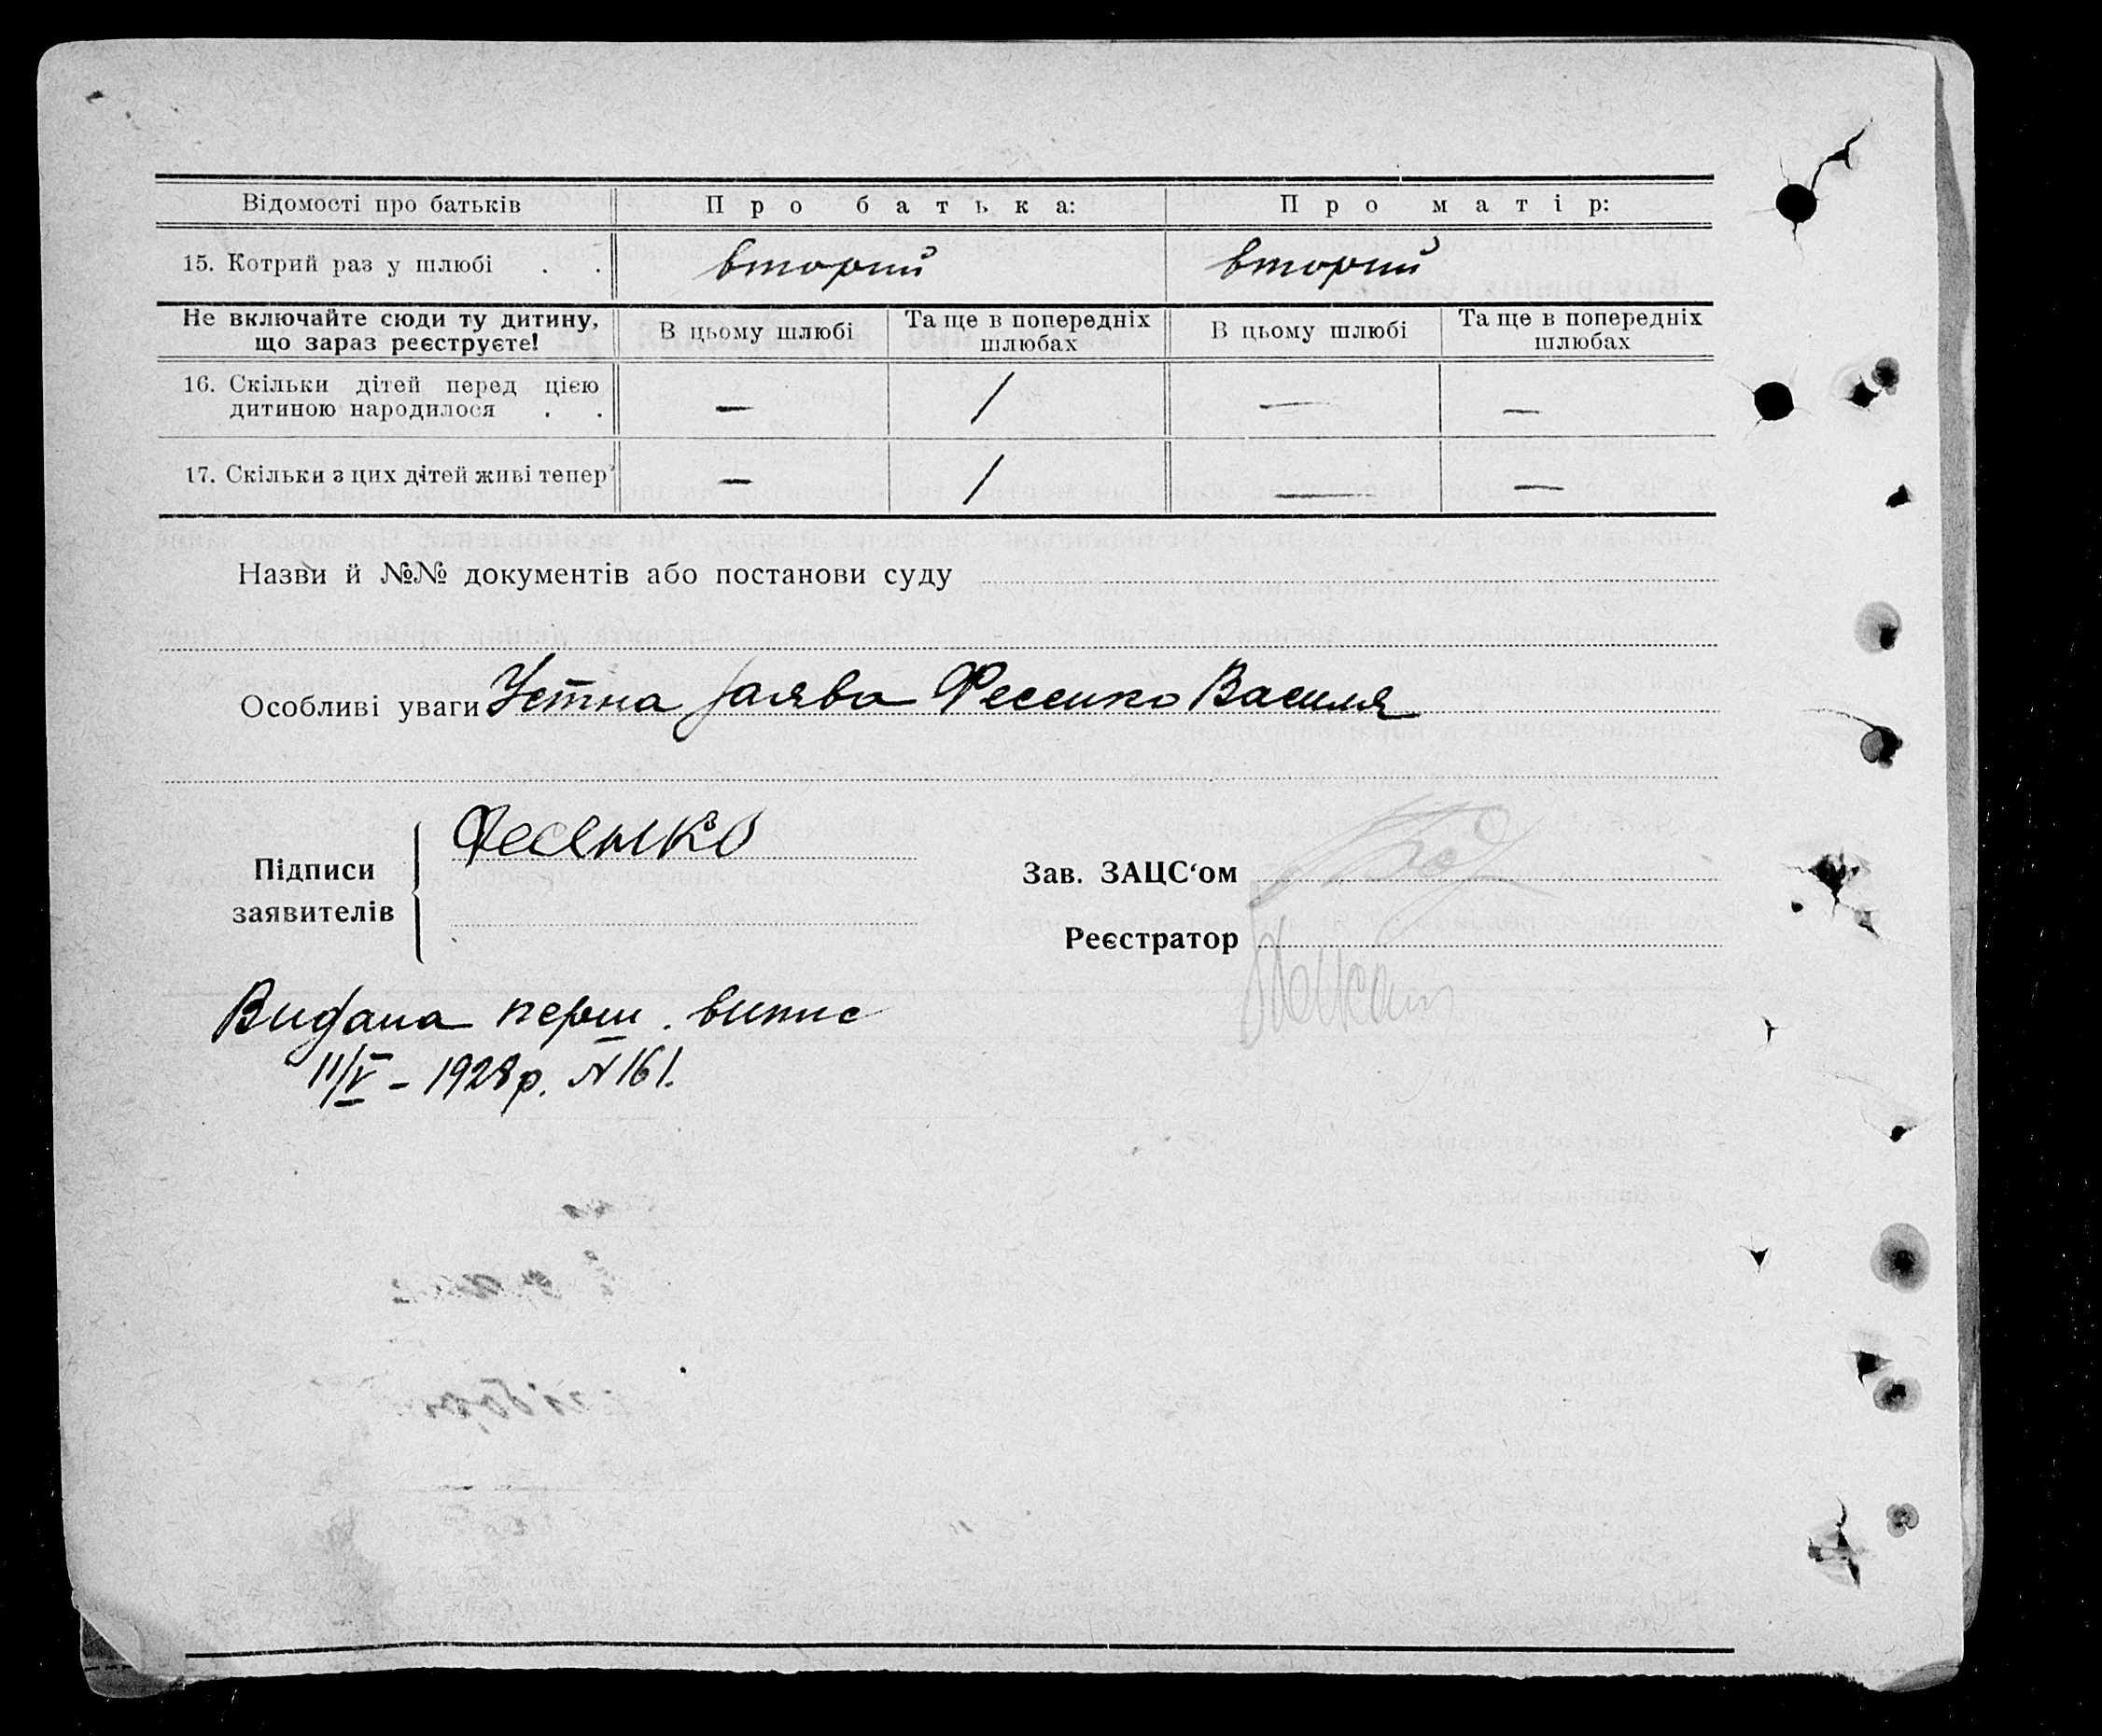 Відомості про батьків Про батька: Про матір:
15. Котрий раз у шлюбі . . вторий вторий
Не включайте сюди ту дитину, що зараз реєструєте! В цьому шлюбі Та ще в попередніх шлюбах В цьому шлюбі Та ще в попередніх шлюбах
16. Скільки дітей перед цією дитиною народилося . . — / — —
17. Скільки з цих дітей живі тепер — / — —
Назви й №№ документів або постанови суду
Особливі уваги Устна заява Фесенко Василя
Підписи заявителів Фесенко
Зав. ЗАЦС‘ом
Реєстратор
Видана перш. випис
11/V – 1928 р. N 161.